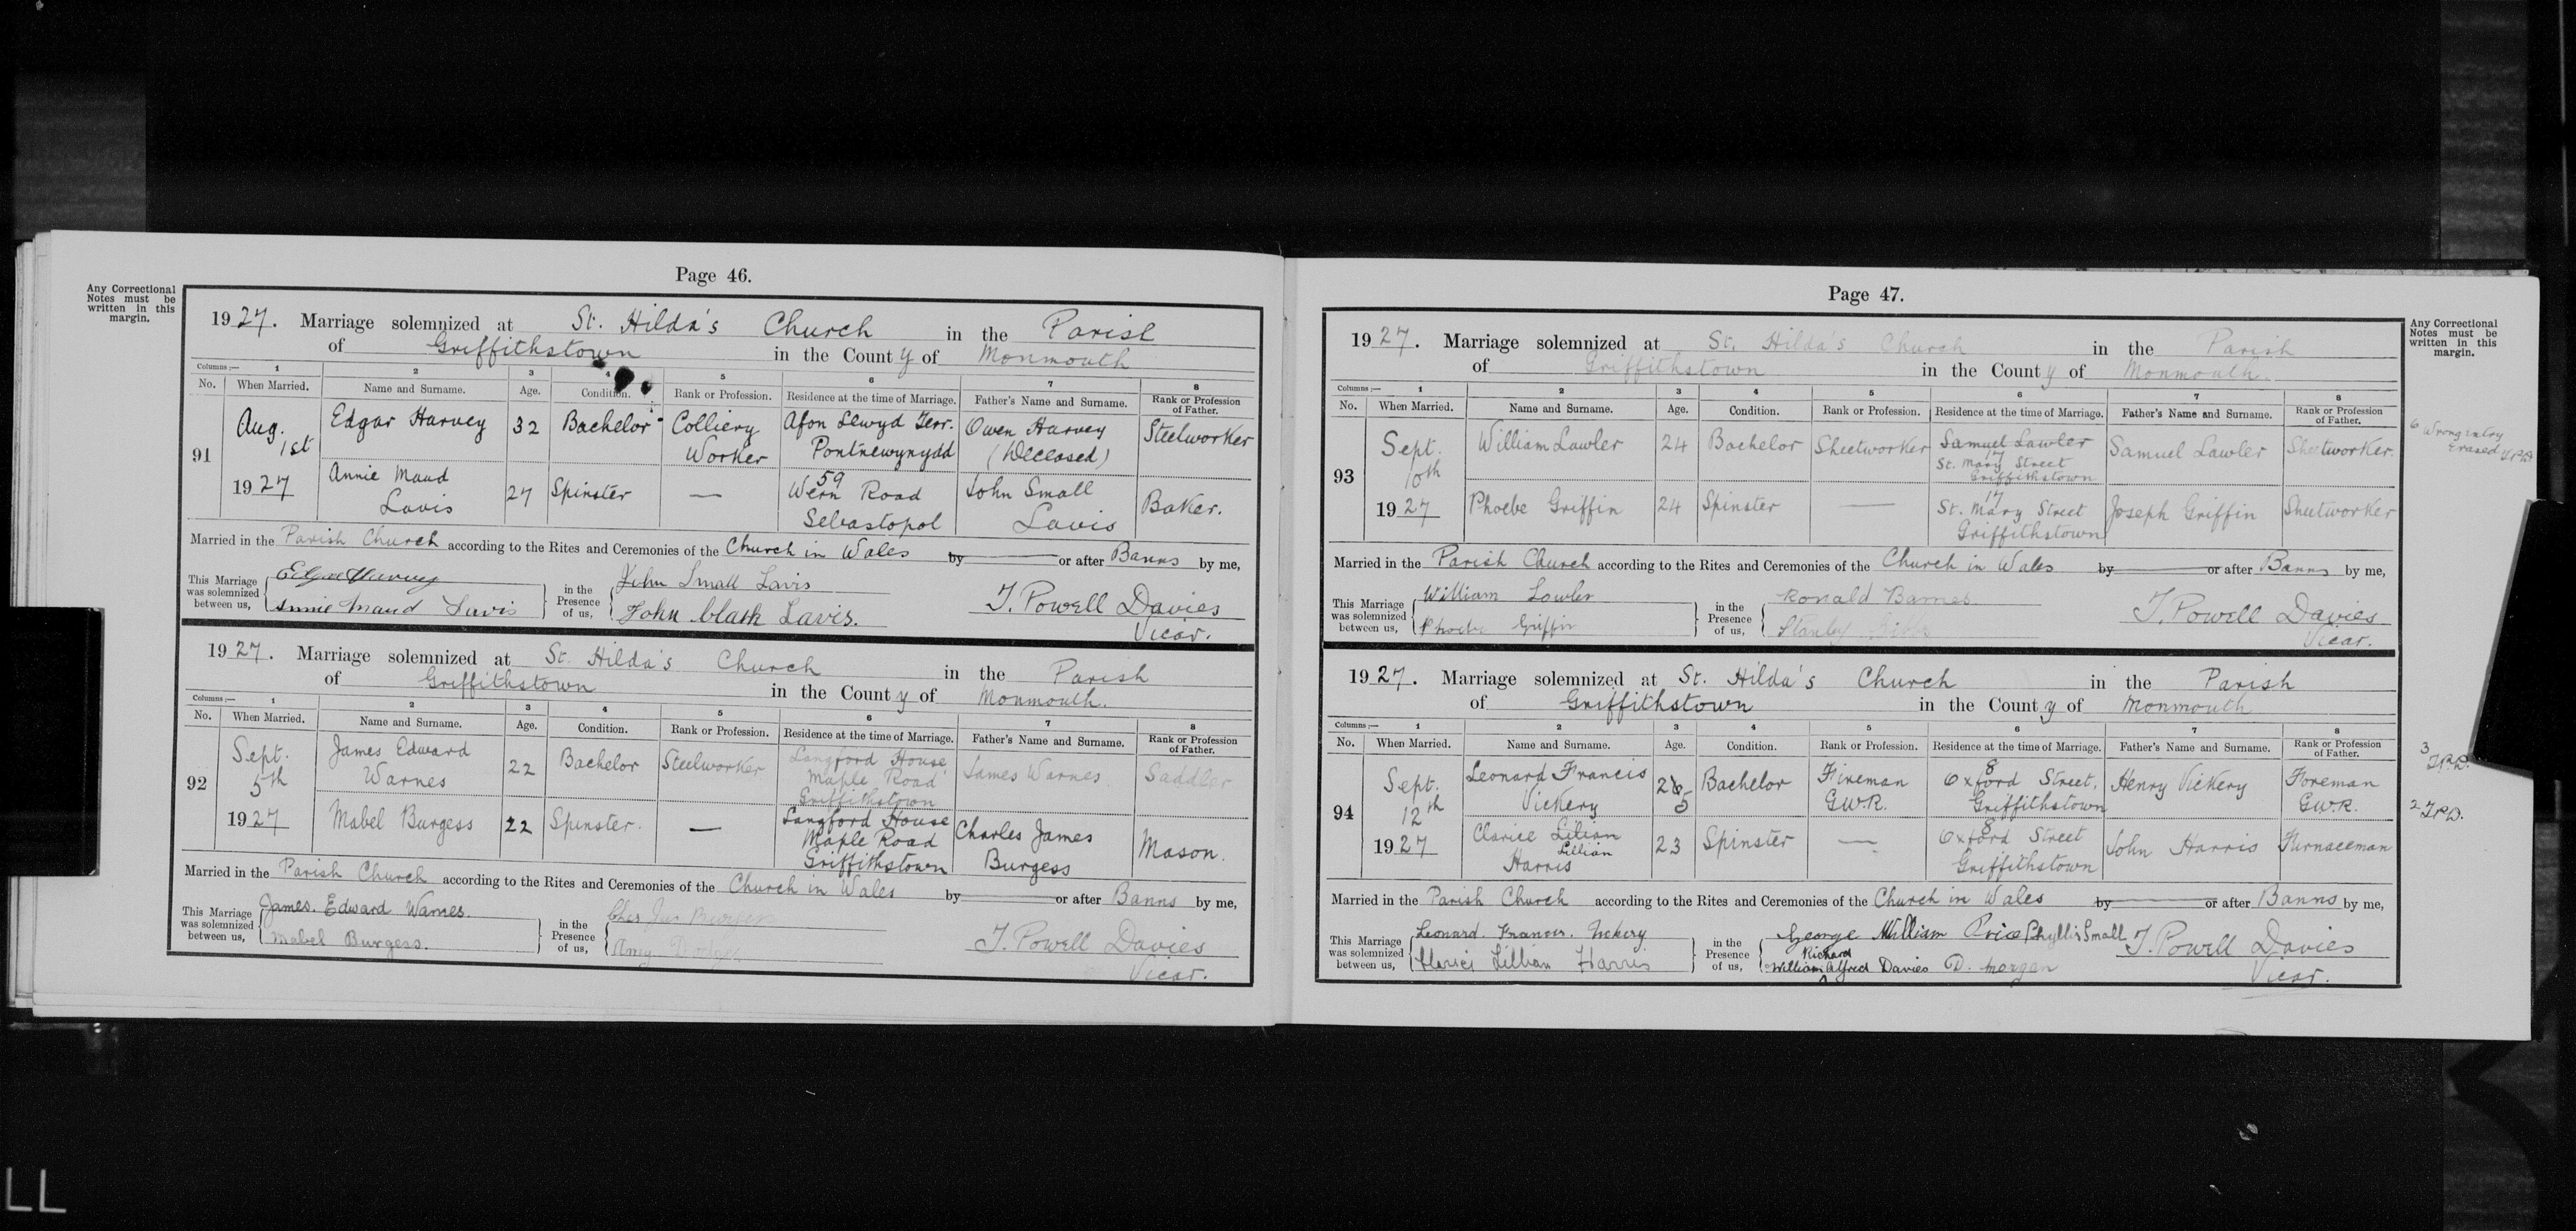 Page 46.
Any Correctional
Notes must be
written in this
margin.
1927. Marriage solemnized at St. Hilda's Church in the Parish
of Griffithstown in the County of Monmouth
Columns :— 1 2 3 4 5 6 7 8
No. When Married. Name and Surname. Age. Condition. Rank or Profession. Residence at the time of Marriage. Father's Name and Surname. Rank or Profession of Father.
91 Aug. 1st 1927
Edgar Harvey 32 Bachelor Colliery Worker Afon Llwyd Terr. Pontnewynydd Owen Harvey (Deceased) Steelworker
Annie Maud Lavis 27 Spinster — 59 Wern Road Sebastopol John Small Lavis Baker.
Married in the Parish Church according to the Rites and Ceremonies of the Church in Wales by or after Banns by me,
This Marriage was solemnized between us, Edgar Harvey
Annie Maud Lavis
in the Presence of us, John Small Lavis
John Clark Lavis.
J. Powell Davies
Vicar.
1927. Marriage solemnized at St. Hilda's Church in the Parish
of Griffithstown in the County of Monmouth.
Columns :— 1 2 3 4 5 6 7 8
No. When Married. Name and Surname. Age. Condition. Rank or Profession. Residence at the time of Marriage. Father's Name and Surname. Rank or Profession of Father.
92 Sept. 5th 1927
James Edward Warnes 22 Bachelor Steelworker Langford House Maple Road Griffithstown James Warnes Saddler
Mabel Burgess 22 Spinster. — Langford House Maple Road Griffithstown Charles James Burgess Mason.
Married in the Parish Church according to the Rites and Ceremonies of the Church in Wales by or after Banns by me,
This Marriage was solemnized between us, James. Edward Warnes.
Mabel Burgess.
in the Presence of us, Chas Jas Burgess
Amy
J. Powell Davies
Vicar.
Page 47.
Any Correctional
Notes must be
written in this
margin.
1927. Marriage solemnized at St. Hilda's Church in the Parish
of Griffithstown in the County of Monmouth.
Columns :— 1 2 3 4 5 6 7 8
No. When Married. Name and Surname. Age. Condition. Rank or Profession. Residence at the time of Marriage. Father's Name and Surname. Rank or Profession of Father.
93 Sept. 10th 1927
William Lawler 24 Bachelor Sheetworker Samuel Lawler 17 St. Mary Street Griffithstown Samuel Lawler Sheetworker.
6 Wrong entry
Erased J.P.D.
Phoebe Griffin 24 Spinster — 17 St. Mary Street Griffithstown Joseph Griffin Sheetworker
Married in the Parish Church according to the Rites and Ceremonies of the Church in Wales by or after Banns by me,
This Marriage was solemnized between us, William Lawler
Phoebe Griffin
in the Presence of us, Ronald Barnes
Stanley
J. Powell Davies
Vicar.
1927. Marriage solemnized at St. Hilda's Church in the Parish
of Griffithstown in the County of Monmouth
Columns :— 1 2 3 4 5 6 7 8
No. When Married. Name and Surname. Age. Condition. Rank or Profession. Residence at the time of Marriage. Father's Name and Surname. Rank or Profession of Father.
94 Sept. 12th 1927
Leonard Francis Vickery 26 5 Bachelor Fireman G.W.R. 8 Oxford Street, Griffithstown Henry Vickery Foreman G.W.R.
3 J.P.D.
Clarice Lilian Lillian Harris 23 Spinster — 8 Oxford Street Griffithstown John Harris Furnaceman
2 J.P.D.
Married in the Parish Church according to the Rites and Ceremonies of the Church in Wales by or after Banns by me,
This Marriage was solemnized between us, Leonard. Francis. Vickery
Clarice Lillian Harris
in the Presence of us, George William Price Phyllis Small
William Richard Alfred Davies D. Morgan
J. Powell Davies
Vicar.
LL